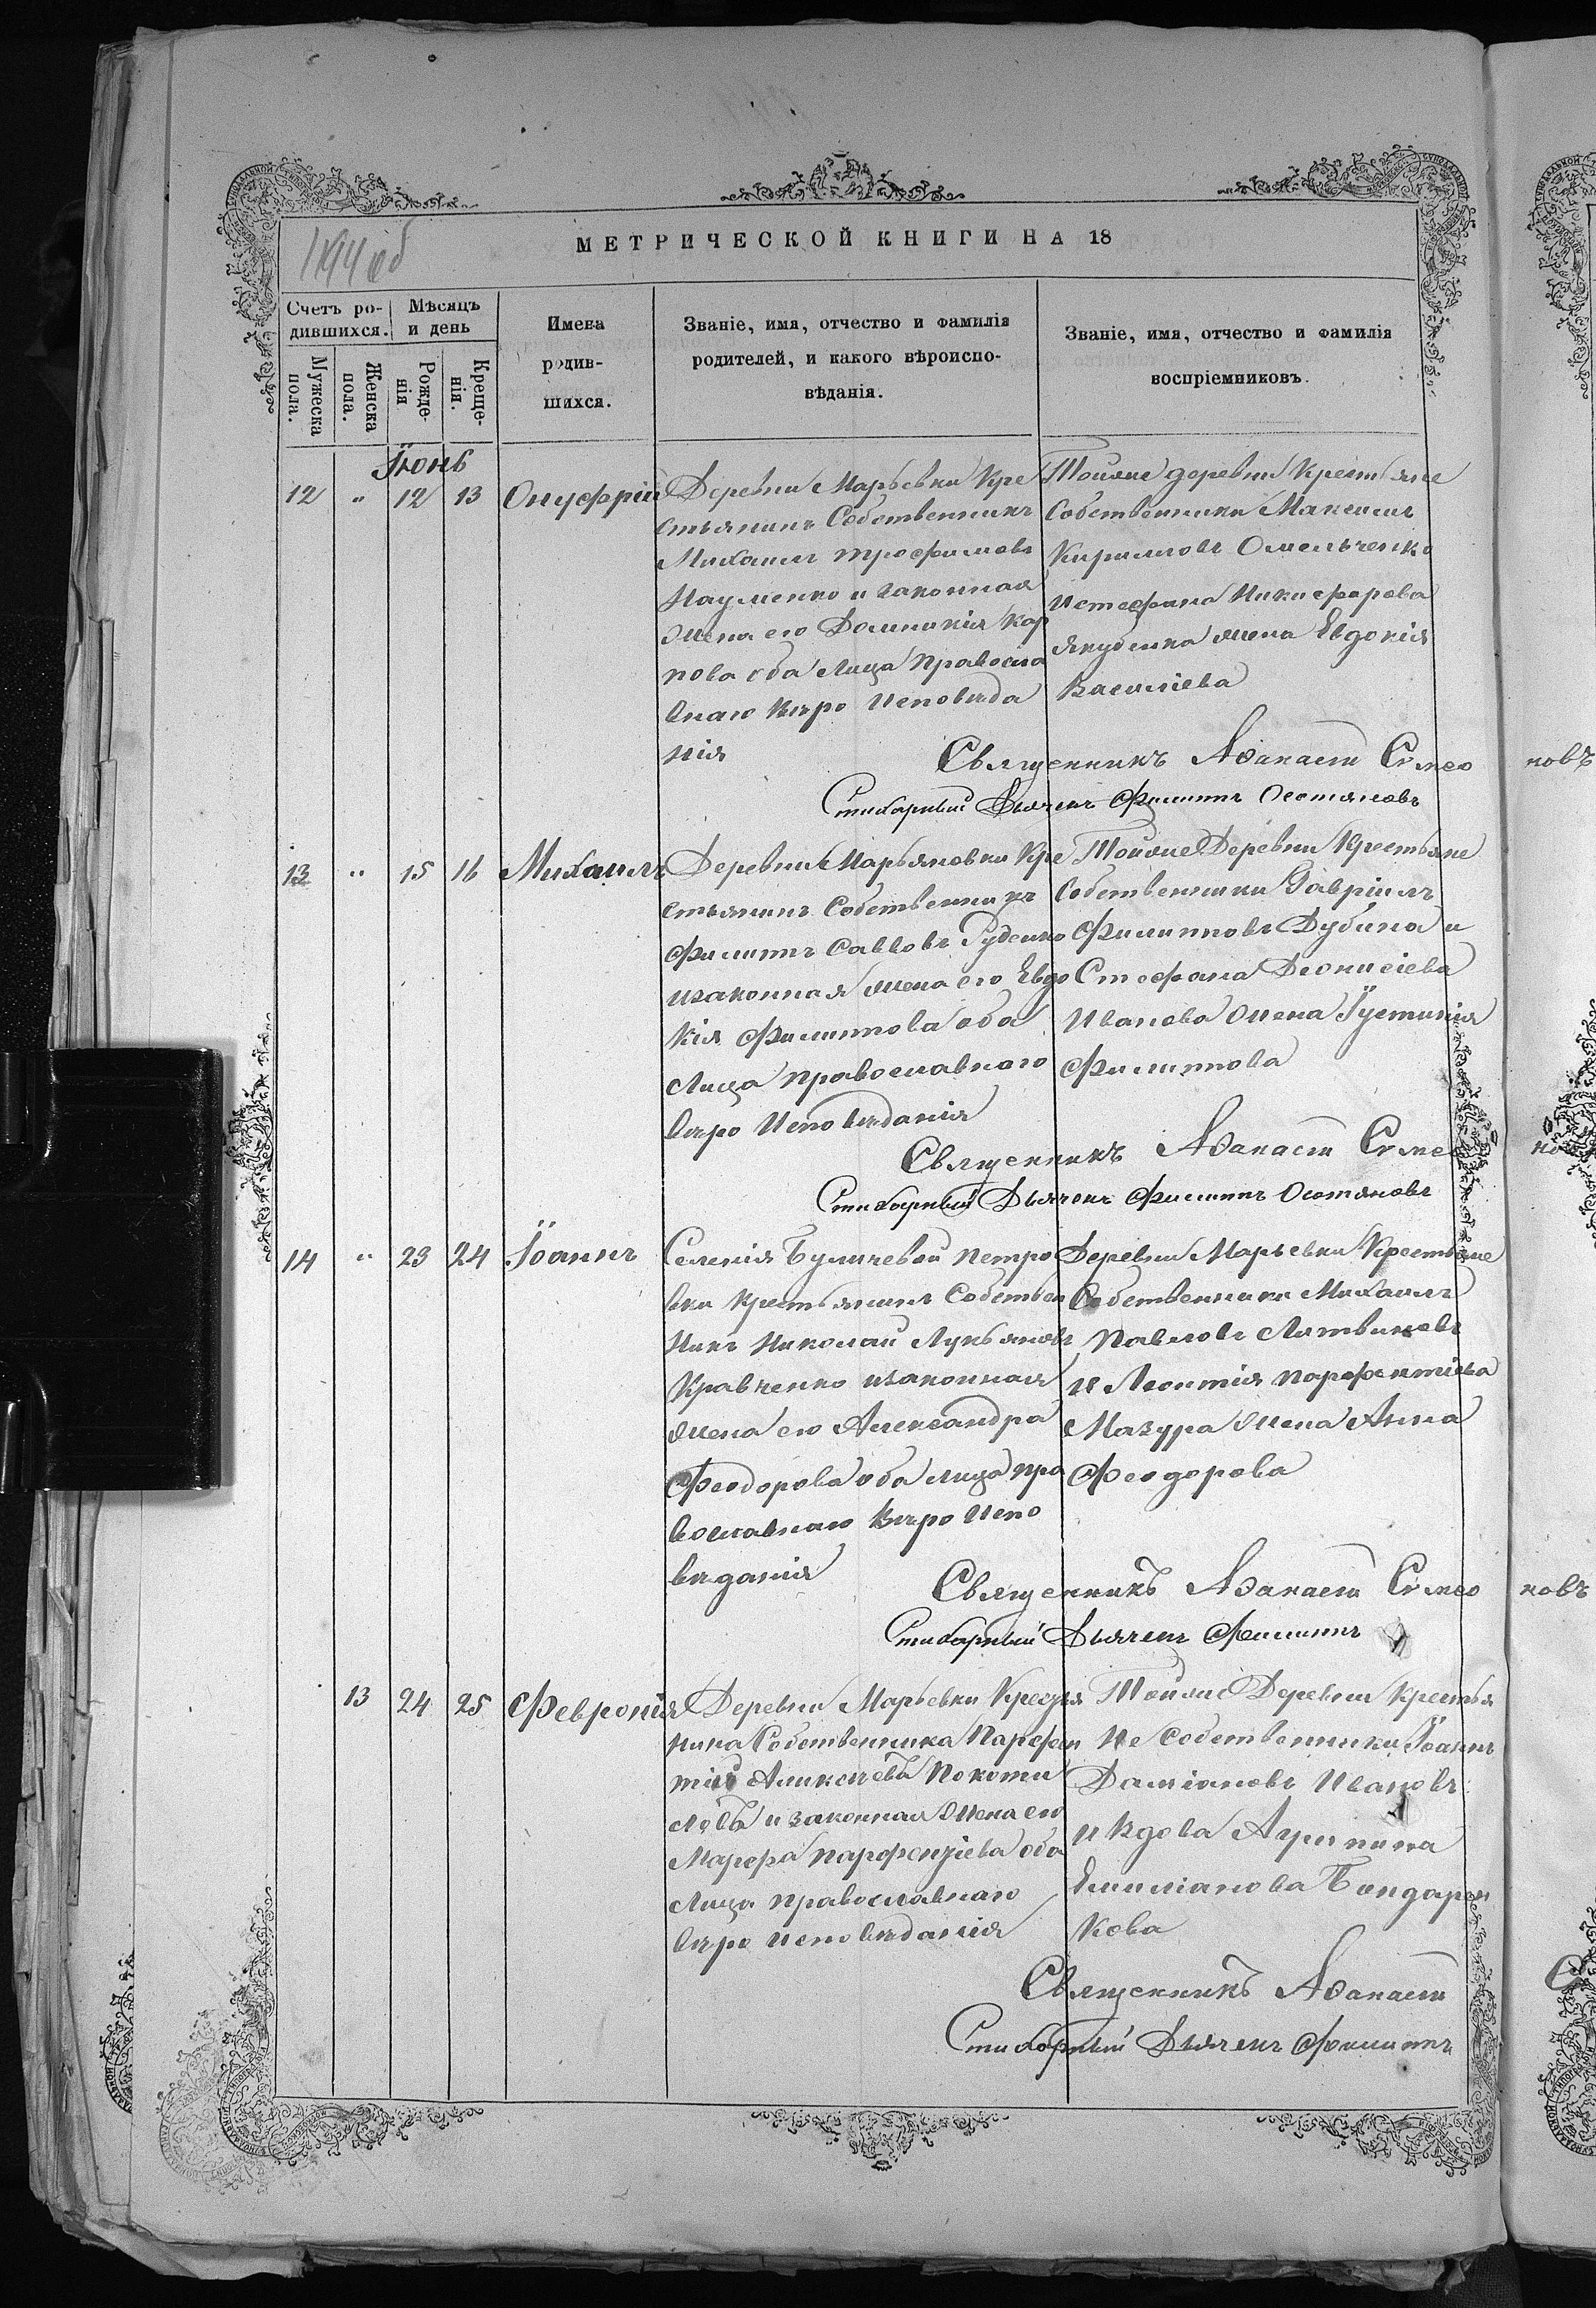 194 об
МЕТРИЧЕСКОЙ КНИГИ НА 18
Счетъ ро-
дившихся.
Мѣсяцъ
и день
Имена
родив-
шихся.
Званіе, имя, отчество и фамилія
родителей, и какого вѣроиспо-
вѣданія.
Званіе, имя, отчество и фамилія
воспріемниковъ.
Мужеска
пола.
Женска
пола.
Рожде-
нія
Креще-
нія.
Іюнь
12 " 12 13 Онуфрій
Деревни Марьевки Кре
стьянинъ Собственникъ
Михаилъ трофимовъ
Науменко и законная
Жена его Домникія Кар
пова оба Лица Правосла
внаго Вѣро Исповѣда
нія
Тойже деревни Крестьяне
Собственники Максимъ
Кирилловъ Омельченко
и стефана Никифорова
Якубенка жена Евдокія
Василіева
Священникъ Аѳанасій Симео новъ
Стихарный Дьячекъ Филиппъ Остяновъ
13 " 15 16 Михаилъ
Деревни Марьяновки Кре
стьянинъ Собственникъ
Филиппъ Савовъ Руденко
изаконная жена его Евдо
кія Филиппова оба
Лица Православнаго
вѣро Исповѣданія
Тойже Деревни Крестьяне
Собственники Гавріилъ
Филипповъ Дубина и
Стефана Діонисіева
Иванова Жена Іустинія
Филиппова
Священникъ Аѳанасій Симео но
Стихарный Дьячекъ Филиппъ Остяновъ
14 " 23 24 Іоаннъ
Селенія Буличевой Петро
вки Крестьянинъ Собствен
Никъ Николай Лукьяновъ
Кравченко изаконная
Жена его Александра
Феодорова оба лица пра
вославнаго Вѣро Испо
вѣданія
Деревни Марьевки Крестьяне
Собственники Михаилъ
Павловъ Литвиновъ
и Леонтія Парфентіева
Мазура Жена Анна
Феодорова
Священникъ Аѳанасій Симео новъ
Стихарный Дьячекъ Филиппъ
13 24 25 Февронія
Деревни Марьевки Крестья
нина Собственника Парфен
тій Аликсѣевъ Покоти
ловъ и законная Жена его
Марфа Парфентіева оба
Лица православнаго
вѣро исповѣданія
Тойже Деревни Крестья
Не Собственники Іоаннъ
Даміановъ Ивановъ
и Вдова Агрипина
Емиліанова Бондарен
кова
Священникъ Аѳанасій
С
Стихарный Дьячекъ Филиппъ